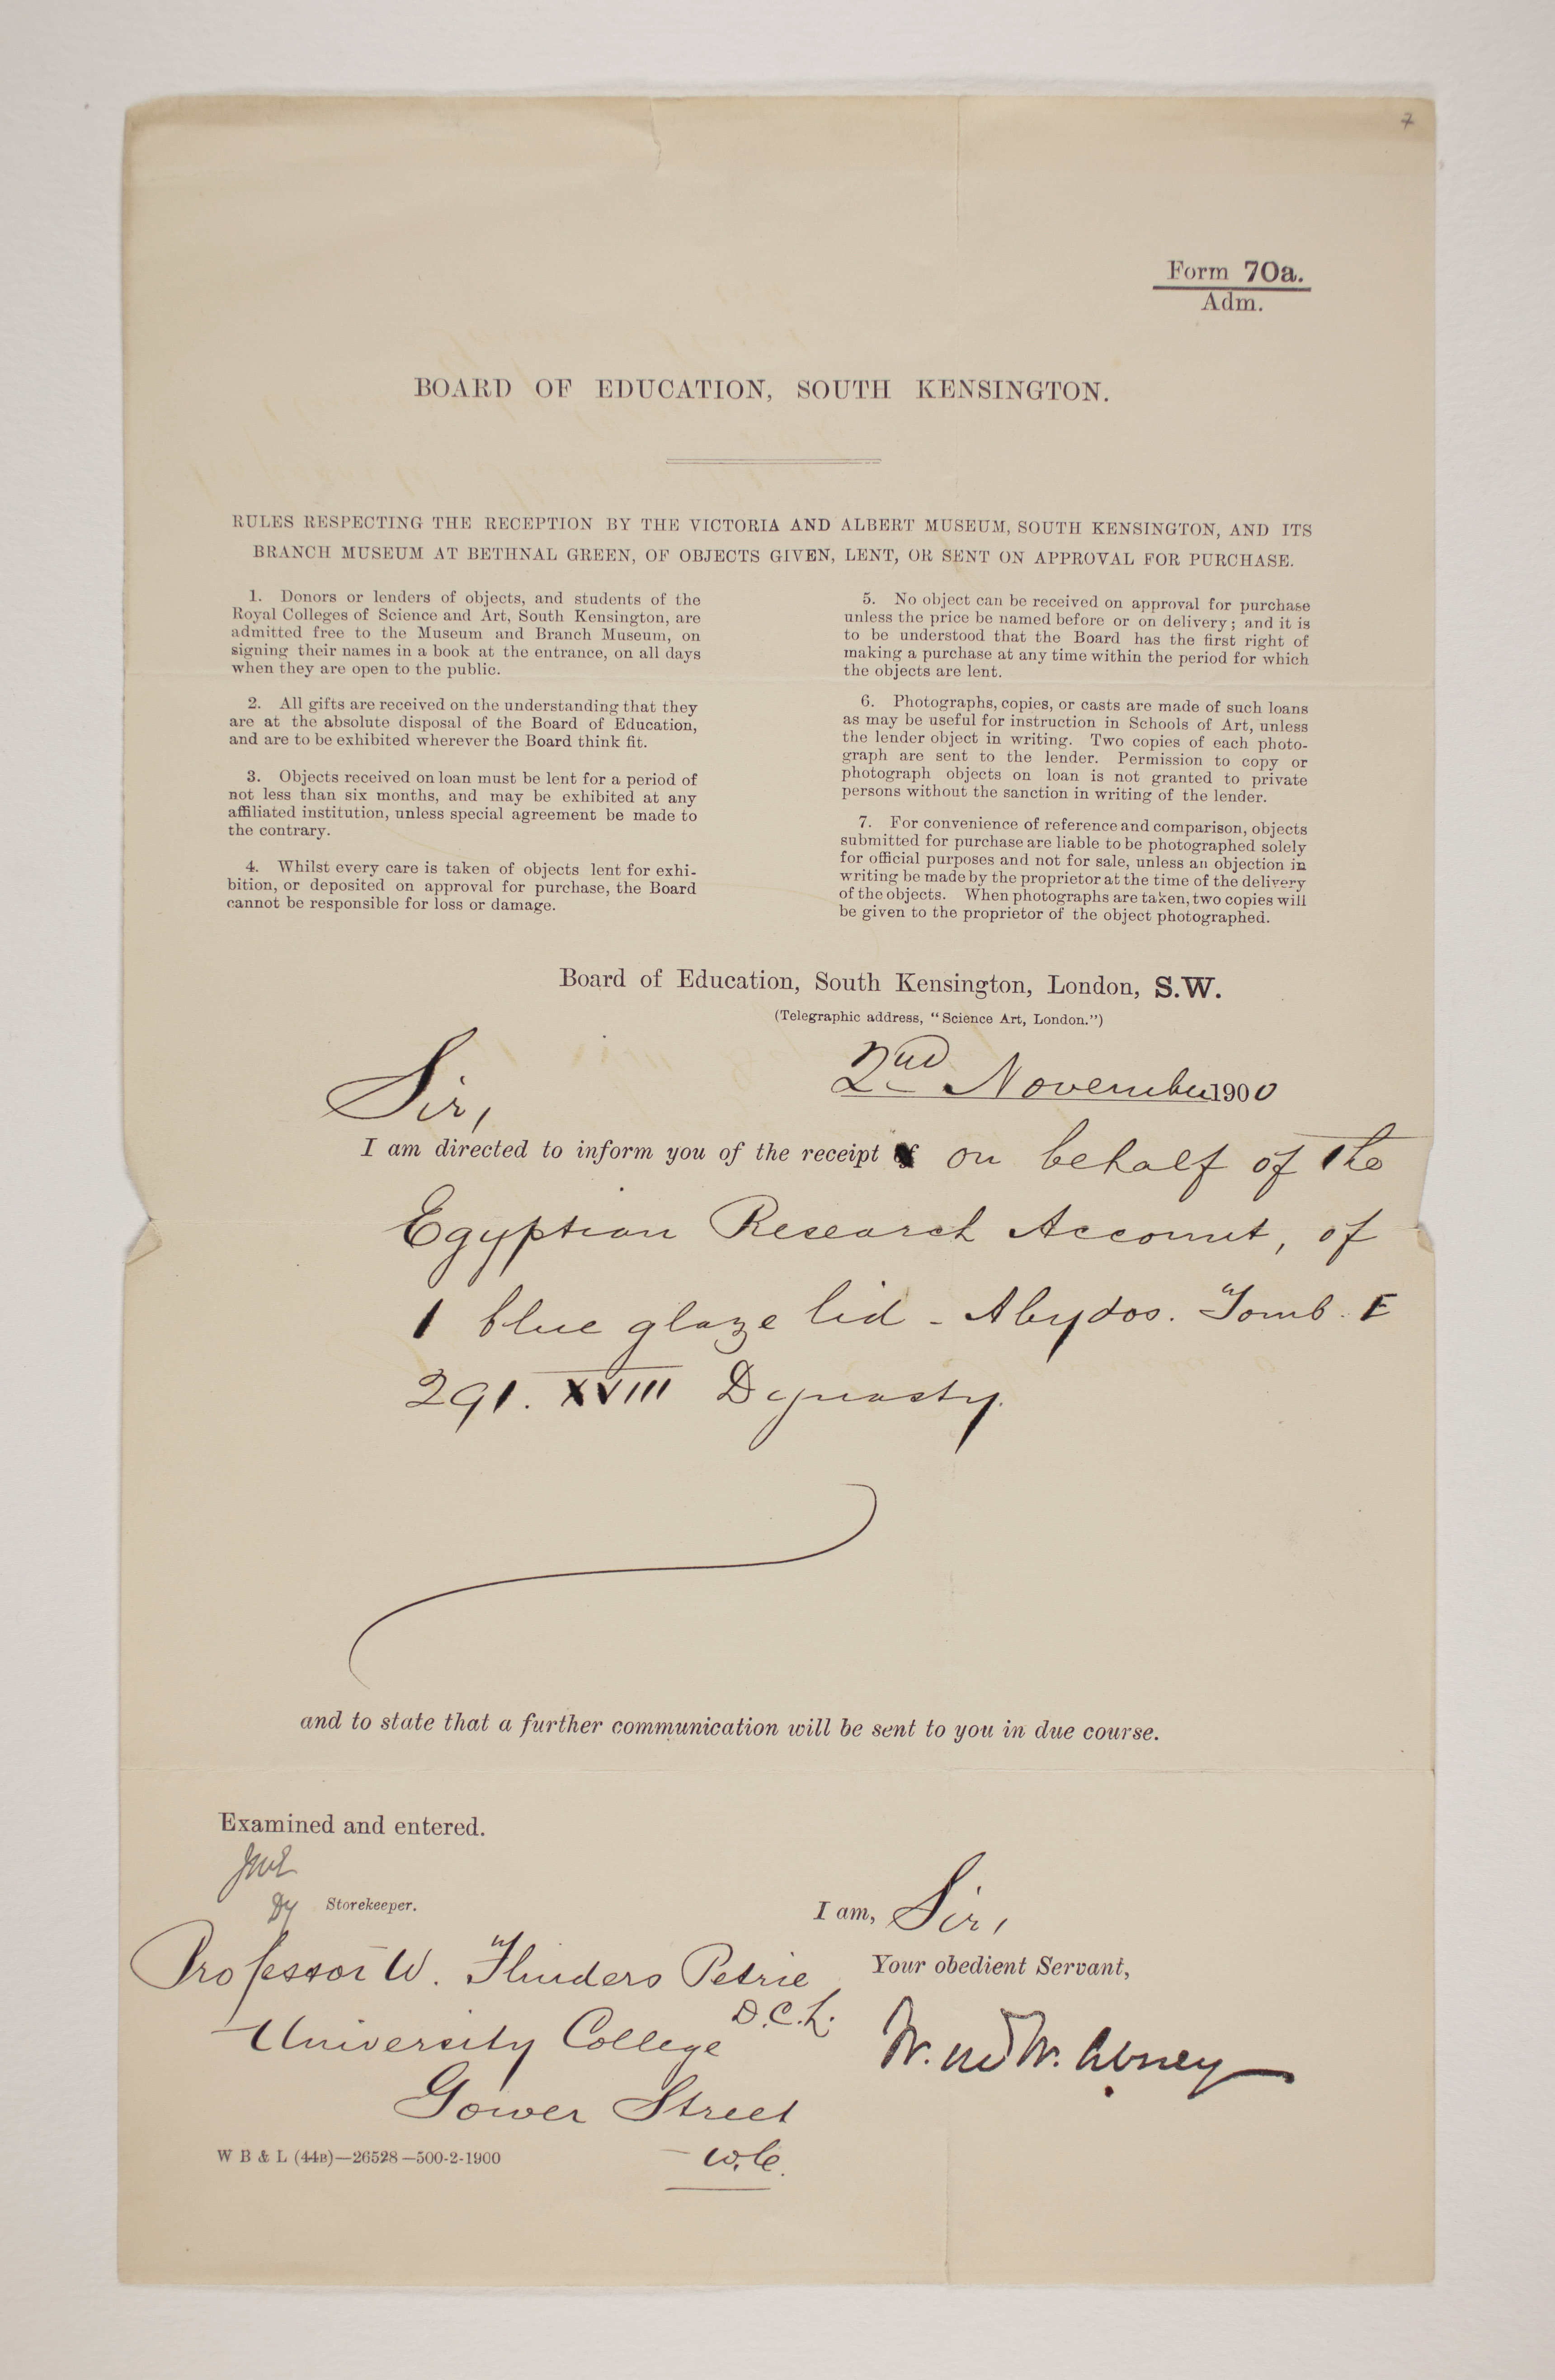 7
Form 70a.
Adm.
BOARD OF EDUCATION, SOUTH KENSINGTON.
RULES RESPECTING THE RECEPTION BY THE VICTORIA AND ALBERT MUSEUM, SOUTH KENSINGTON, AND ITS
BRANCH MUSEUM AT BETHNAL GREEN, OF OBJECTS GIVEN, LENT, OR SENT ON APPROVAL FOR PURCHASE.
1. Donors or lenders of objects, and students of the
Royal Colleges of Science and Art, South Kensington, are
admitted free to the Museum and Branch Museum, on
signing their names in a book at the entrance, on all days
when they are open to the public.
2. All gifts are received on the understanding that they
are at the absolute disposal of the Board of Education,
and are to be exhibited wherever the Board think fit.
3. Objects received on loan must be lent for a period of
not less than six months, and may be exhibited at any
affiliated institution, unless special agreement be made to
the contrary.
4. Whilst every care is taken of objects lent for exhi-
bition, or deposited on approval for purchase, the Board
cannot be responsible for loss or damage.
5. No object can be received on approval for purchase
unless the price be named before or on delivery; and it is
to be understood that the Board has the first right of
making a purchase at any time within the period for which
the objects are lent.
6. Photographs, copies, or casts are made of such loans
as may be useful for instruction in Schools of Art, unless
the lender object in writing. Two copies of each photo-
graph are sent to the lender. Permission to copy or
photograph objects on loan is not granted to private
persons without the sanction in writing of the lender.
7. For convenience of reference and comparison, objects
submitted for purchase are liable to be photographed solely
for official purposes and not for sale, unless an objection in
writing be made by the proprietor at the time of the delivery
of the objects. When photographs are taken, two copies will
be given to the proprietor of the object photographed.
Board of Education, South Kensington, London, S.W.
(Telegraphic address, "Science Art, London.")
2nd November 1900
Sir,
I am directed to inform you of the receipt on behalf of the
Egyptian Research Account, of
1 blue glaze lid - Abydos. Tomb. E
291. XVIII Dynasty.
and to state that a further communication will be sent to you in due course.
Examined and entered.
Dy Storekeeper.
I am, Sir,
Your obedient Servant,
W. de W. Abney
Professor W. Flinders Petrie,
D.C.L.
University College
Gower Street
W.C.
W B & L (44B)—26528—500-2-1900